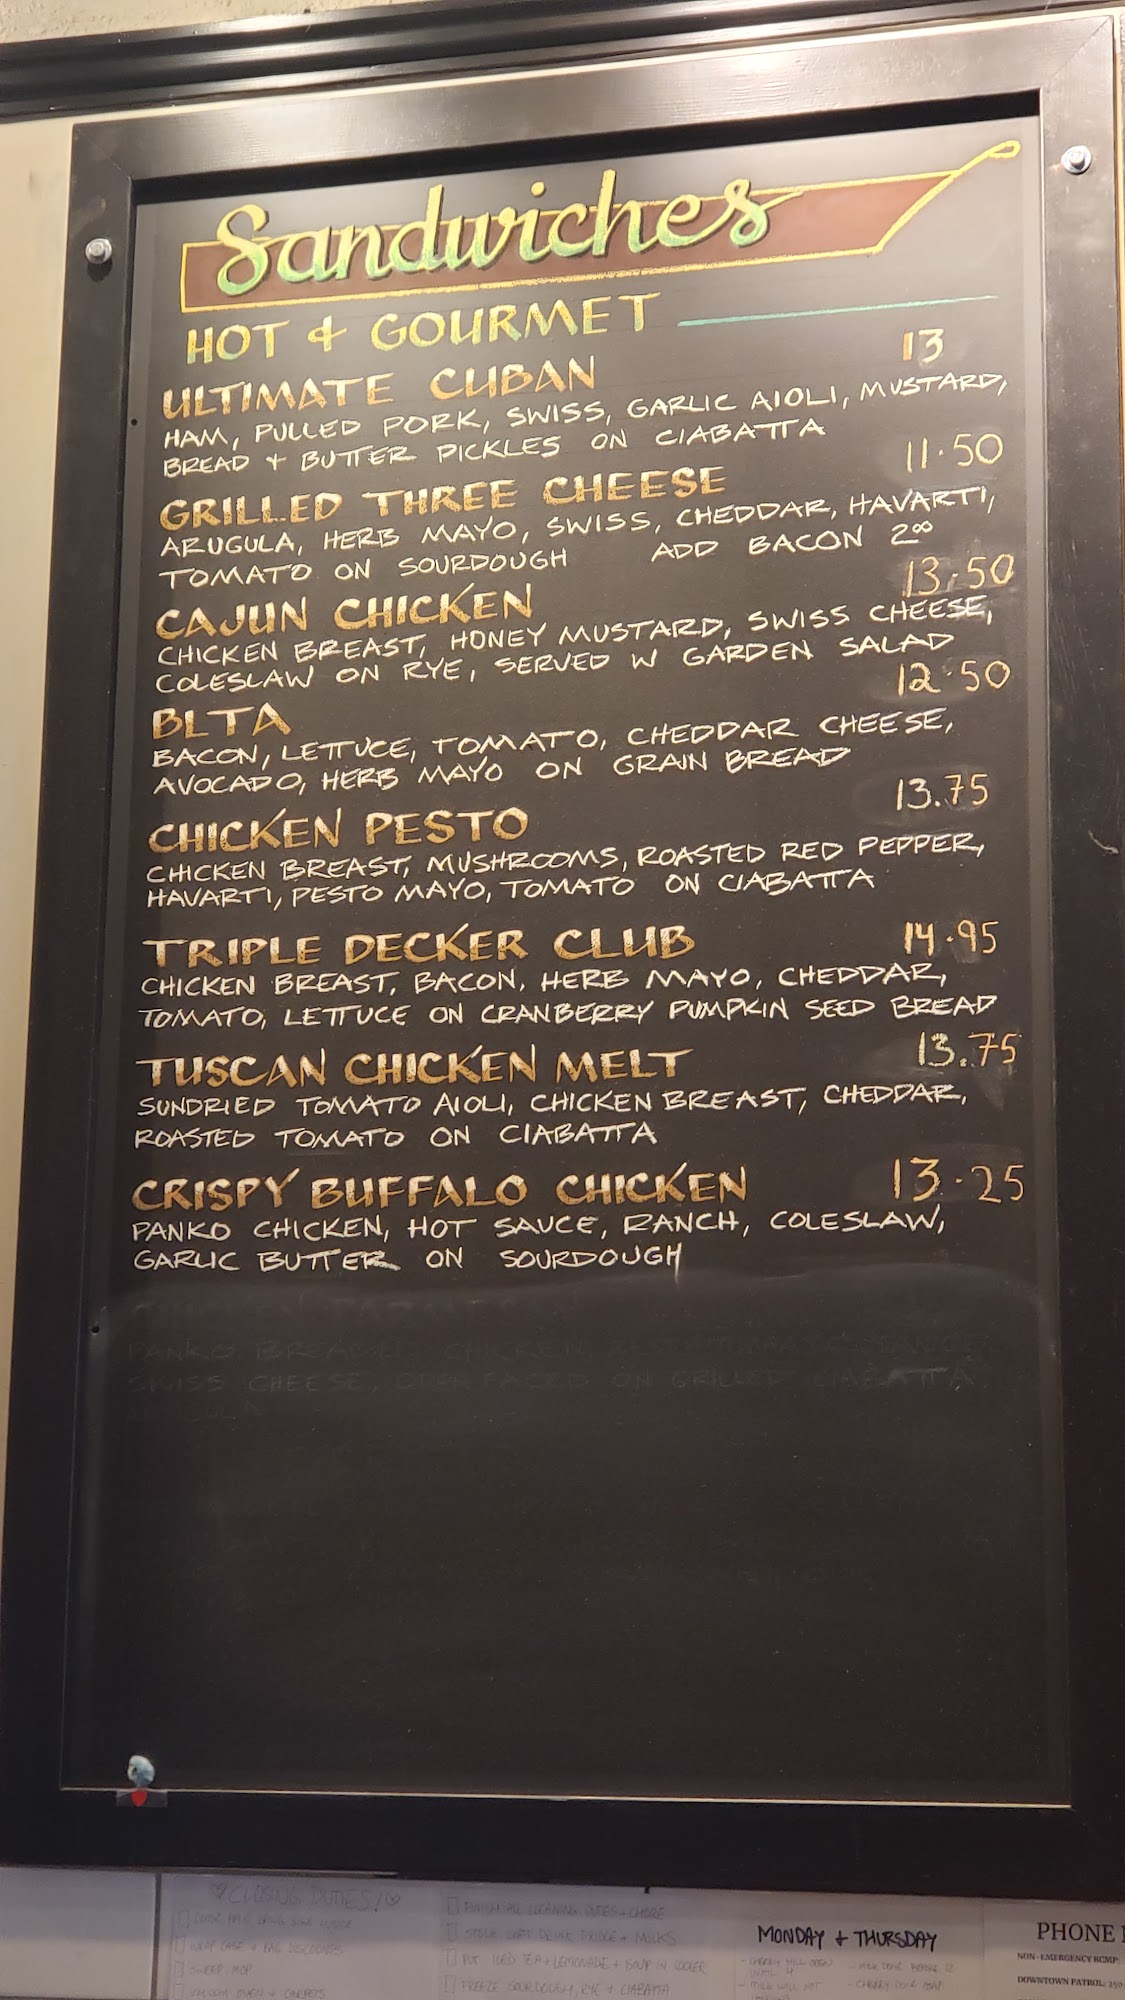 Sandwiches
HOT & GOURMET
ULTIMATE CUBAN 13
HAM, PULLED PORK, SWISS, GARLIC AIOLI, MUSTARD,
BREAD + BUTTER PICKLES ON CIABATTA
GRILLED THREE CHEESE 11.50
ARUGULA, HERB MAYO, SWISS, CHEDDAR, HAVARTI,
TOMATO ON SOURDOUGH ADD BACON 2.00
CAJUN CHICKEN 13.50
CHICKEN BREAST, HONEY MUSTARD, SWISS CHEESE,
COLESLAW ON RYE, SERVED W GARDEN SALAD
BLTA 12.50
BACON, LETTUCE, TOMATO, CHEDDAR CHEESE,
AVOCADO, HERB MAYO ON GRAIN BREAD
CHICKEN PESTO 13.75
CHICKEN BREAST, MUSHROOMS, ROASTED RED PEPPER,
HAVARTI, PESTO MAYO, TOMATO ON CIABATTA
TRIPLE DECKER CLUB 14.95
CHICKEN BREAST, BACON, HERB MAYO, CHEDDAR,
TOMATO, LETTUCE ON CRANBERRY PUMPKIN SEED BREAD
TUSCAN CHICKEN MELT 13.75
SUNDRIED TOMATO AIOLI, CHICKEN BREAST, CHEDDAR,
ROASTED TOMATO ON CIABATTA
CRISPY BUFFALO CHICKEN 13.25
PANKO CHICKEN, HOT SAUCE, RANCH, COLESLAW,
GARLIC BUTTER ON SOURDOUGH
PANKO BREADED CHICKEN,
SWISS CHEESE, OPEN FACED ON GRILLED CIABATTA,
CLOSING DUTIES!
SWEEP, MOP
FINISH ALL CLEANING DUTIES + CHORE
PUT ICED TEA + LEMONADE + SOUP IN COOLER
FREEZE SOURDOUGH, RYE + CIABATTA
MONDAY + THURSDAY
PHONE
NON-EMERGENCY RCMP:
DOWNTOWN PATROL: 250